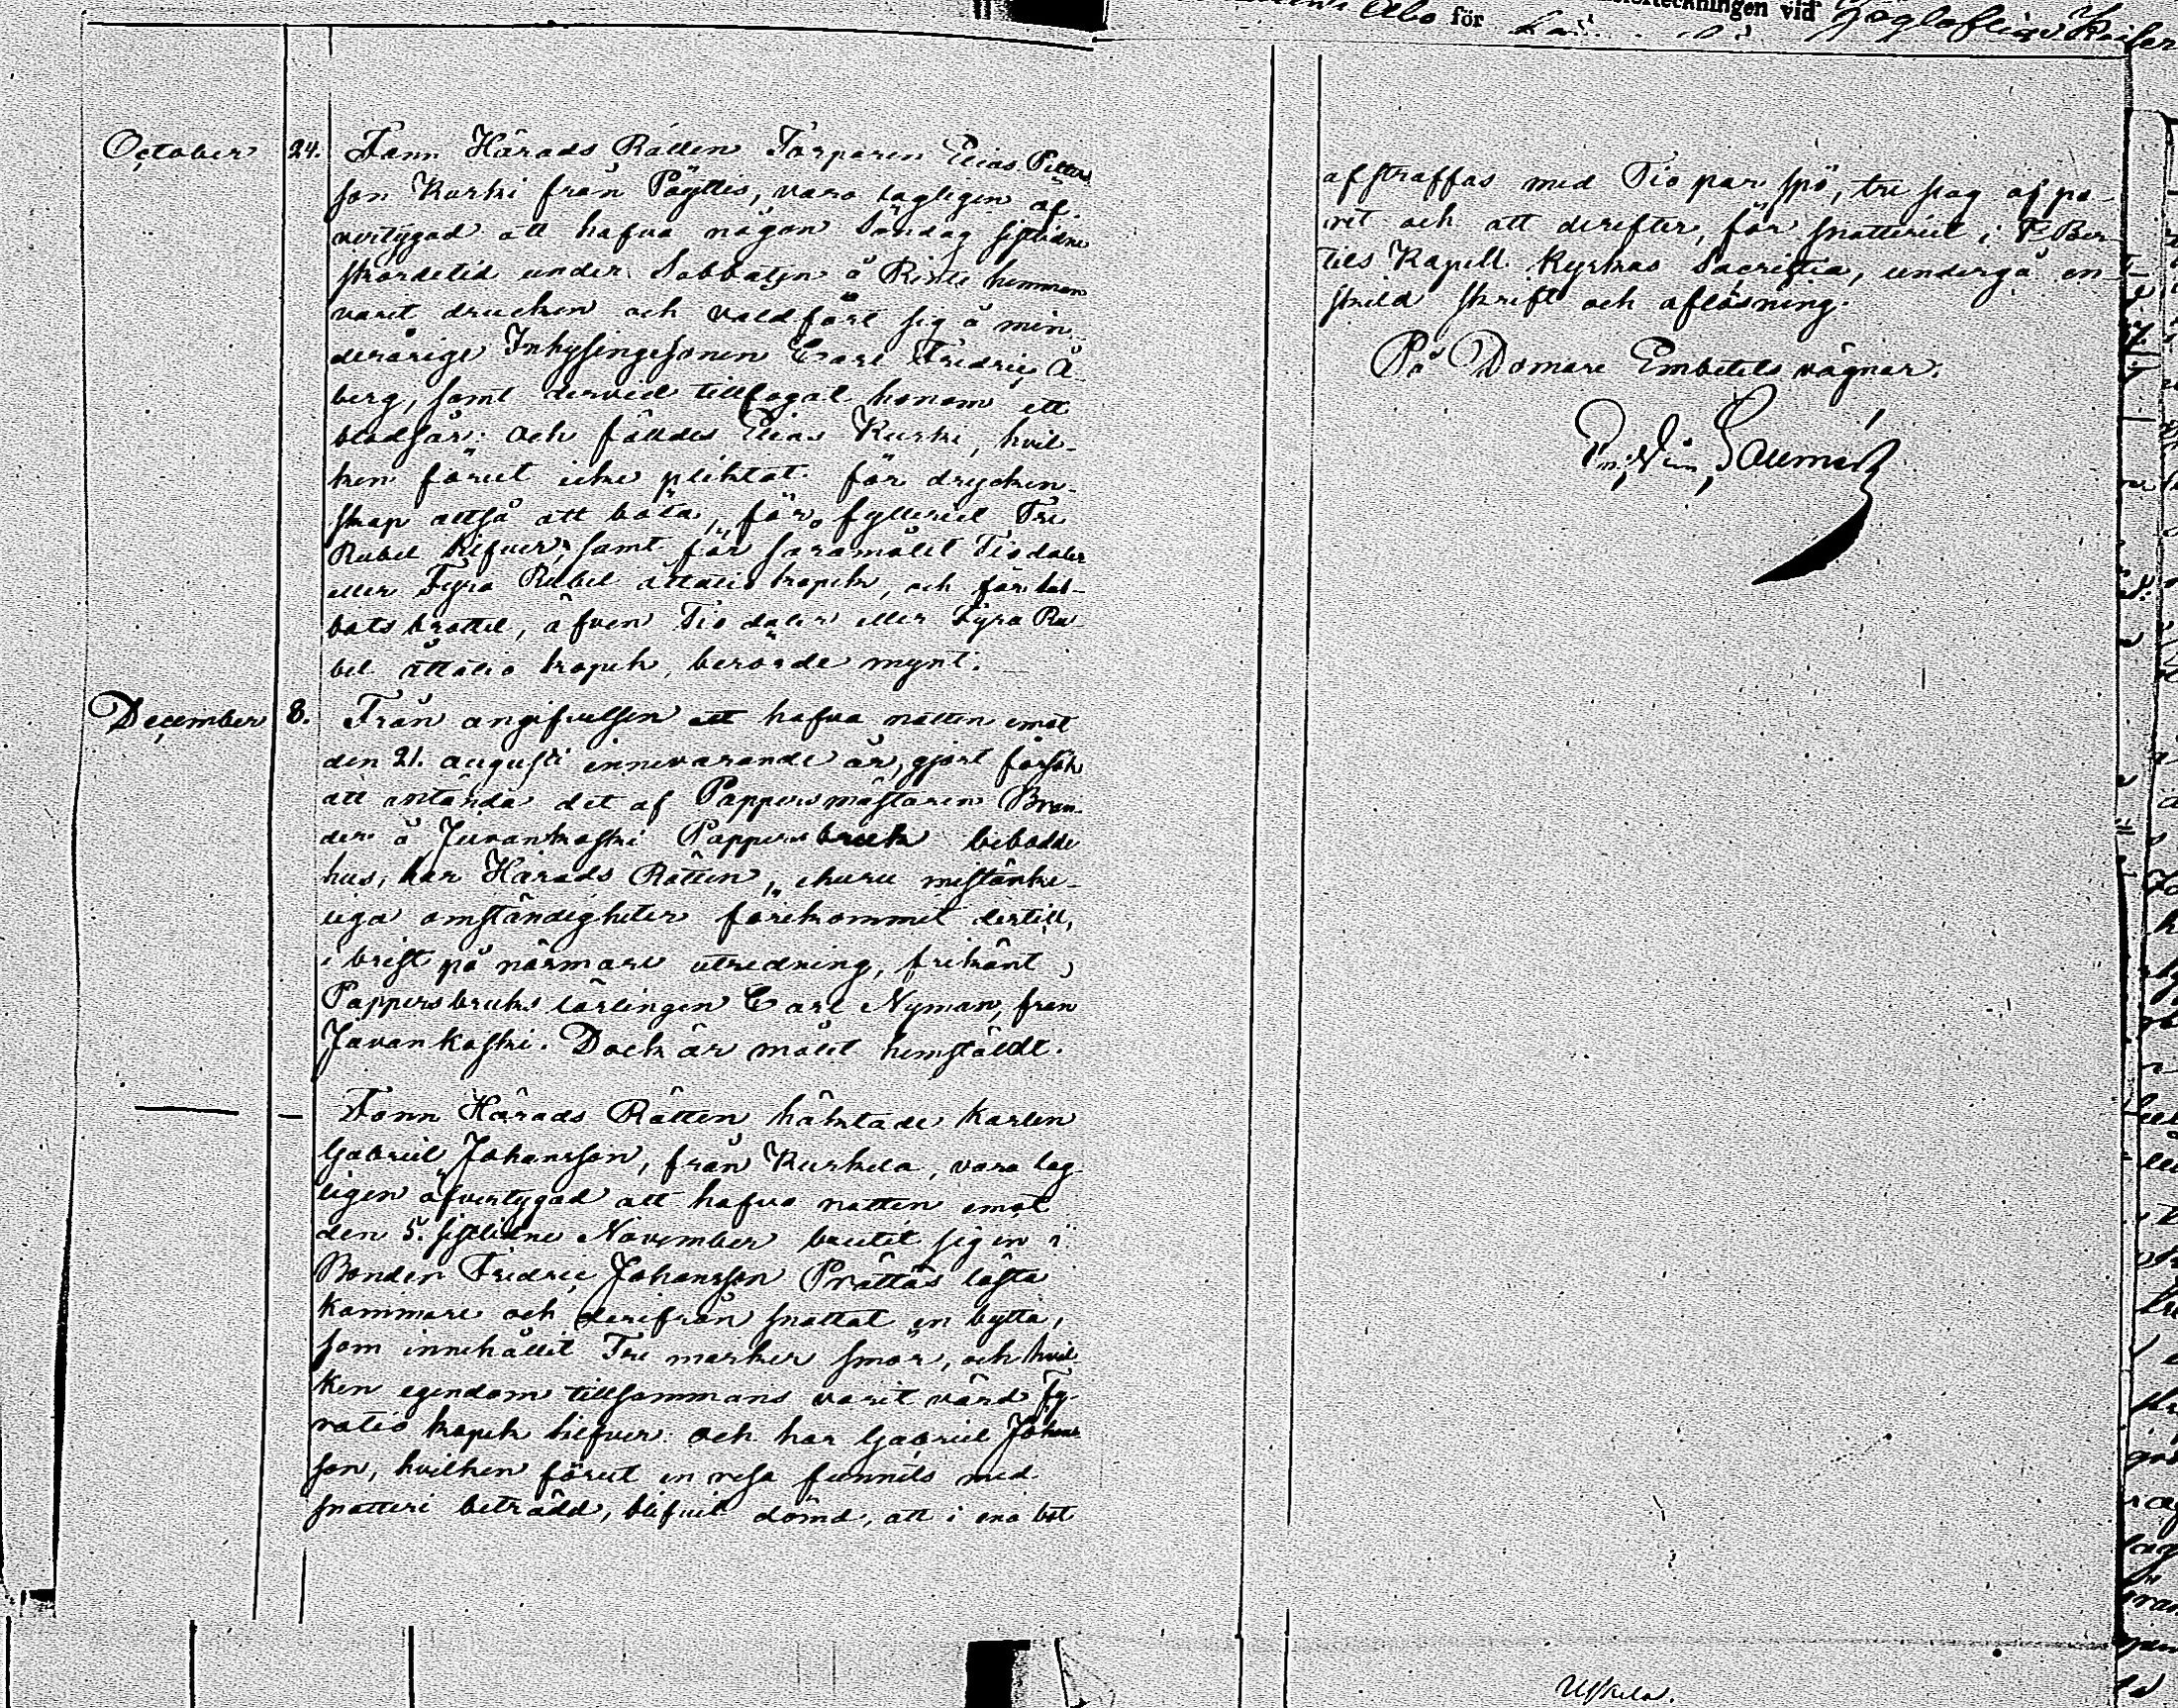 October 24. Fann Härads Rätten Torparen Elias Petters
son Kurki från Pöytlis, vara lagligen öf-
vertygad att hafva någon Söndag sistlidne
skördetid under Sabbaten å Risti hemman
varit drucken och våldfört sig å min-
derårige Inhysingesonen Carl Fredric Å-
berg, samt dervid tillfogat honom ett
blodsår. Och fälldes Elias Kurki, hvil-
ken förut icke pliktat för drycken-
skap altså att böta, för fylleriet Tre
Rubel Silfver, samt för saramålet Tio daler
eller Fyra Rubel åttatio kopek, och för sab-
bats brottet, äfven Tio daler eller Fyra Ru-
bel åttatio kopek, berörde mynt.
December 8. Från angifvelsen att hafva natten emot
den 21. augusti innevarande år, gjort försök
att antända det af Pappersmästaren
å Juvankoski Pappersbruk bebodde
hus, har Härads Rätten, ehuru misstänke-
liga omständigheter förekommit dertill,
i brist på närmare utredning, frikänt
Pappersbruks lärlingen Carl Nyman, från
Juvankoski. Dock är målet hemstäldt.
Fann Härads Rätten häktade Karlen
Gabriel Johansson, från Kurkela, vara lag-
ligen öfvertygad att hafva natten emot
den 5. sistlidne November brutit sig in i
Bonden Fredric Johansson Prättäs låsta
kammare och derifrån snattat en bytta,
som innehållit Tre marker smör, och hvil-
ken egendom tillsammans varit värd fy-
ratio kopek Silfver. Och har Gabriel Johans-
son, hvilken förut en resa funnits med
snatteri beträdd, blifvit dömd, att i ena bot
Åbo för
vid
afstraffas med Tio par spö, tre slag af pa-
ret och att derefter, för snatteriet i S:t Ber-
tils Kapell Kyrkas Sacristia, undergå en-
skild skrift och aflösning.
På Domare Embetets vägnar.
Uskela.